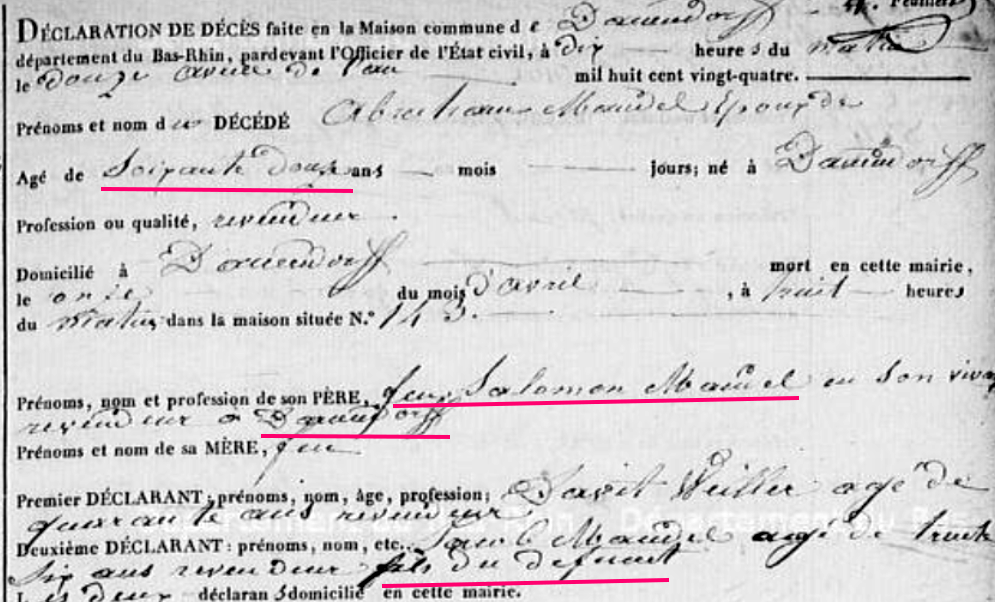 DÉCLARATION DE DÉCÈS faite en la Maison commune d e Dauendorff
département du Bas-Rhin, pardevant l'Officier de l'État civil, à dix heure s du matin
le douze avril de l'an mil huit cent vingt-quatre.
Prénoms et nom d u DÉCÉDÉ Abraham Maudel Epoux de
Agé de Soixante douze ans mois jours; né à Dauendorff
Profession ou qualité, revendeur.
Domicilié à Dauendorff mort en cette mairie,
le onze du mois d'avril, à huit heures
du matin dans la maison située N.° 143.
Prénoms, nom et profession de son PÈRE, feu Salomon Maudel en son vivant
revendeur à Dauendorff
Prénoms et nom de sa MÈRE, feu
Premier DÉCLARANT; prénoms, nom, âge, profession; David Weiller agé de
quarante ans revendeur
Deuxième DÉCLARANT: prénoms, nom, etc. Jacob Maudel agé de trente
six ans revendeur fils du defunt
Les deux déclaran s domicilié en cette mairie.